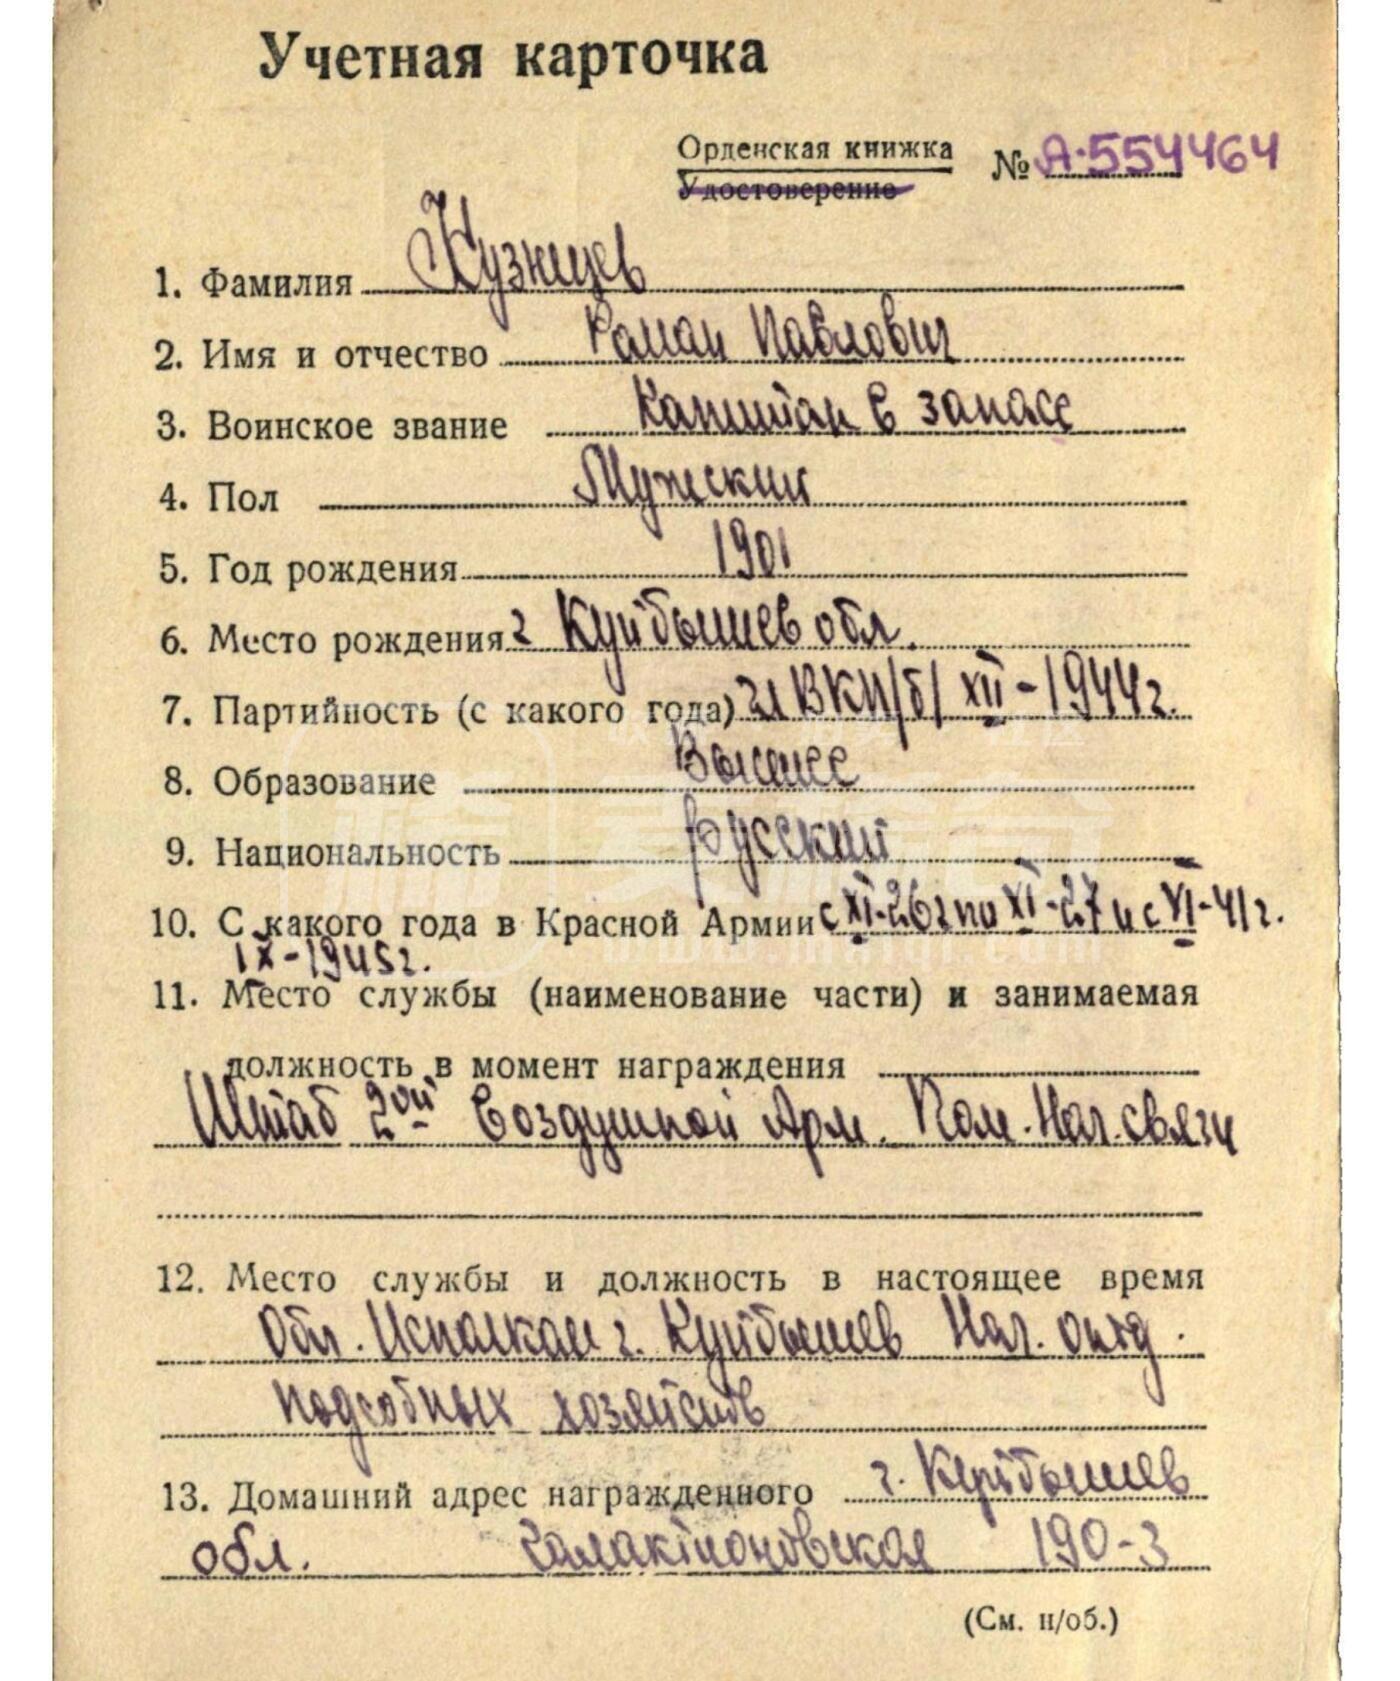 Учетная карточка
Орденская книжка № А-554464
Удостоверение
1. Фамилия Кузнецов
2. Имя и отчество Роман Павлович
3. Воинское звание Капитан в запасе
4. Пол Мужской
5. Год рождения 1901
6. Место рождения г Куйбышев обл.
7. Партийность (с какого года) чл ВКП/б/ XII-1944г.
8. Образование Высшее
9. Национальность Русский
10. С какого года в Красной Армии с XI-26г по XI-27 и с VI-41г.
IX-1945г.
11. Место службы (наименование части) и занимаемая
должность в момент награждения
Штаб 2ой Воздушной Арм. Пом. Нач. связи
12. Место службы и должность в настоящее время
Обл. Исполком г. Куйбышев Нач. отд.
подсобных хозяйств
13. Домашний адрес награжденного г. Куйбышев
обл. Галактионовская 190-3
(См. н/об.)
www.maiqi.com